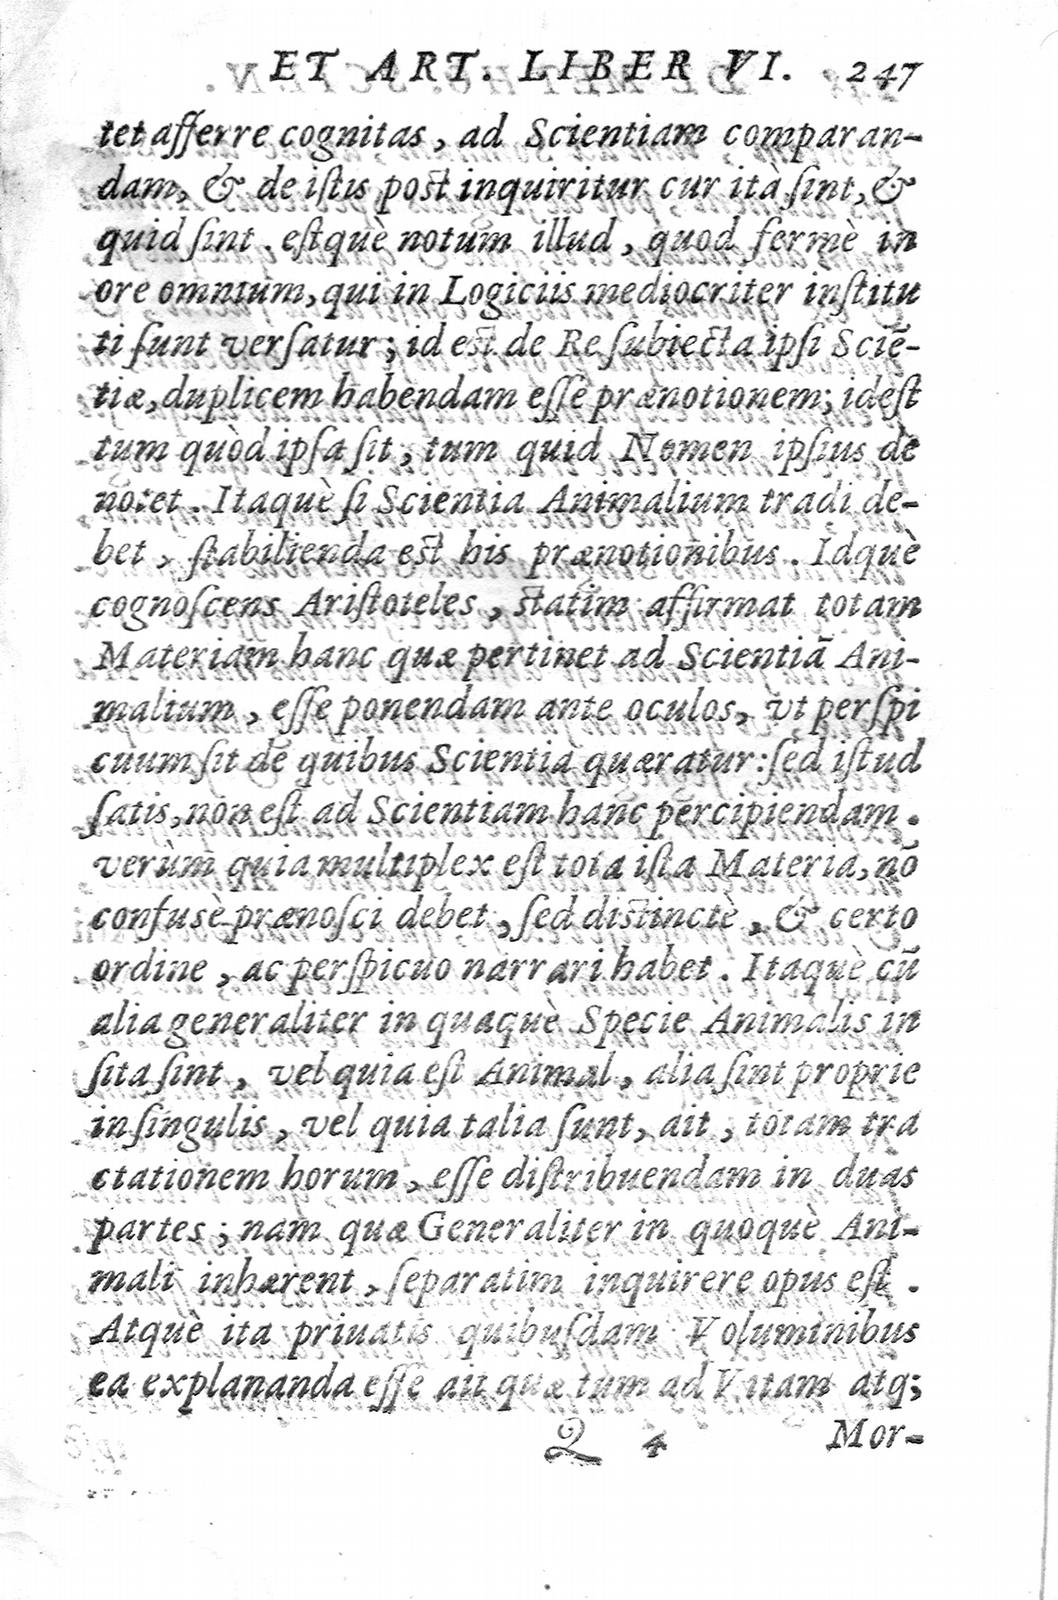 ET ART. LIBER VI. 247
tet afferre cognitas, ad Scientiam comparan-
dam, & de iſtis post inquiritur cur ità ſint, &
quid ſint. eſtquè notum illud, quod fermè in
ore omnium, qui in Logiciis mediocriter inſtitu
ti ſunt verſatur; id est de Re ſubiecta ipſi Sciē-
tiæ, duplicem habendam eſſe prænotionem; ideſt
tum quòd ipſa ſit, tum quid Nomen ipſius de
notet. Itaquè ſi Scientia Animalium tradi de-
bet, ſtabilienda est his prænotionibus. Idquè
cognoſcens Ariſtoteles, statim affirmat totam
Materiam hanc quæ pertinet ad Scientiā Ani-
malium, eſſe ponendam ante oculos, vt perſpi
cuum ſit de quibus Scientia quæratur: ſed iſtud
ſatis, non eſt ad Scientiam hanc percipiendam.
verùm quia multiplex eſt tota iſta Materia, nō
confusè prænoſci debet, ſed distinctè, & certo
ordine, ac perſpicuo narrari habet. Itaquè cū
alia generaliter in quaquè Specie Animalis in
ſita ſint, vel quia eſt Animal, alia ſint proprie
in ſingulis, vel quia talia ſunt, ait, totam tra
ctationem horum, eſſe diſtribuendam in duas
partes; nam quæ Generaliter in quoquè Ani-
mali inhærent, ſeparatim inquirere opus eſt.
Atquè ita priuatis quibuſdam Voluminibus
ea explananda eſſe ait quæ tum ad Vitam atq;
Q 4 Mor-